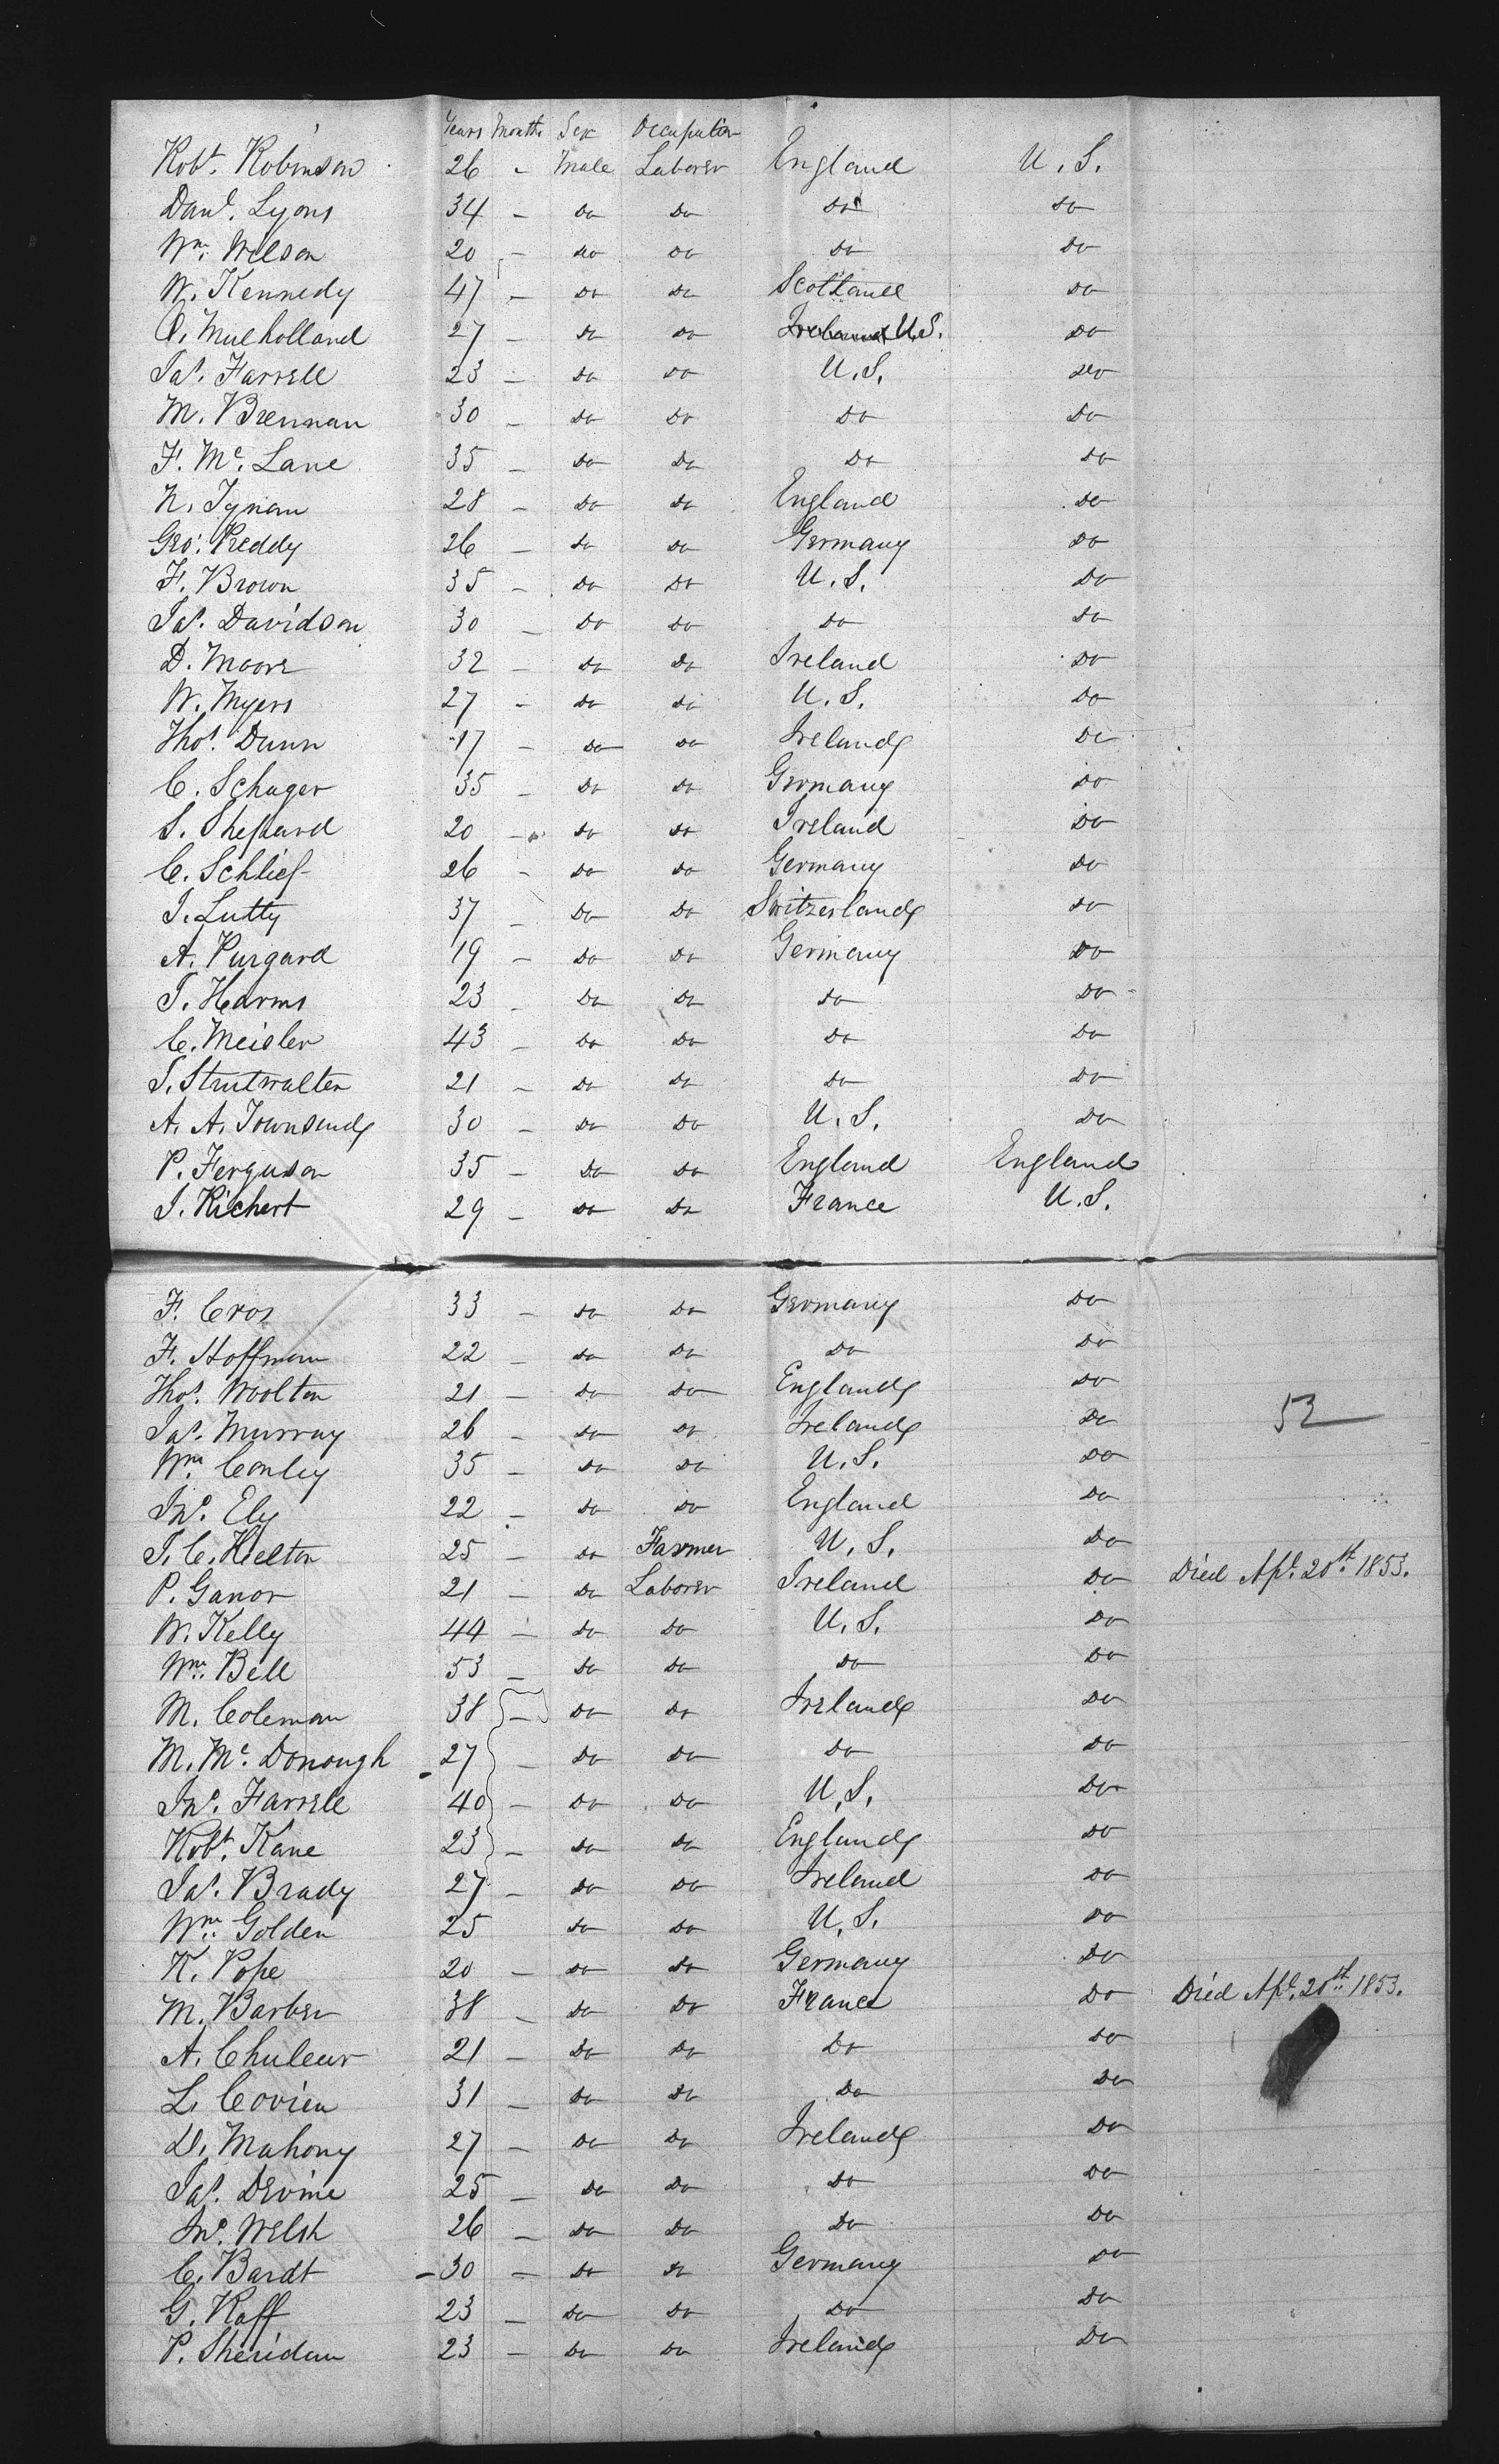 Years Months Sex Occupation
Robt. Robinson 26 - Male Laborer England U. S.
Danl. Lyons 34 - do do do do
Wm. Wilson 20 - do do do do
W. Kennedy 47 - do do Scotland do
Mulholland 27 - do do Ireland U.S. do
Jas. Farrell 23 - do do U. S. do
M. Brennan 30 - do do do do
F. Mc. Lane 35 - do do do do
N. Tynan 28 - do do England do
Geo. Preddy 26 - do do Germany do
F. Brown 35 - do do U. S. do
Jas. Davidson 30 - do do do do
D. Moore 32 - do do Ireland do
W. Myers 27 - do do U. S. do
Thos. Dunn 17 - do do Ireland do
C. Schager 35 - do do Germany do
S. Shepard 20 - do do Ireland do
C. Schlief 26 - do do Germany do
J. Lutty 37 - do do Switzerland do
A. Purgard 19 - do do Germany do
T. Harms 23 - do do do do
C. Meisler 43 - do do do do
T. Strutwalter 21 - do do do do
A. A. Townsend 30 - do do U. S. do
P. Ferguson 35 - do do England England
J. Richert 29 - do do France U. S.
F. Cros 33 - do do Germany do
F. Hoffman 22 - do do do do
Thos. Woolton 21 - do do England do
Jas. Murray 26 - do do Ireland do 52
Wm. Conley 35 - do do U. S. do
Jno. Ely 22 - do do England do
T. C. Hielton 25 - do Farmer U. S. do
P. Ganor 21 - do Laborer Ireland do Died Apl. 20th 1853.
W. Kelly 44 - do do U. S. do
Wm. Bell 53 - do do do do
M. Coleman 38 - do do Ireland do
M. Mc. Donough 27 - do do do do
Jno. Farrele 40 - do do U. S. do
Robt. Kane 23 - do do England do
Jas. Brady 27 - do do Ireland do
Wm. Golden 25 do do U. S. do
K. Pope 20 - do do Germany do
M. Barber 38 - do do France do Died Apl. 20th 1853.
A. Chuleur 21 - do do do do
L. Covien 31 - do do do do
D. Mahony 27 - do do Ireland do
Jas. Devine 25 - do do do do
Jno. Welsh 26 - do do do do
C. Bardt 30 - do do Germany do
G. Raff 23 - do do do do
P. Sheridan 23 - do do Ireland do